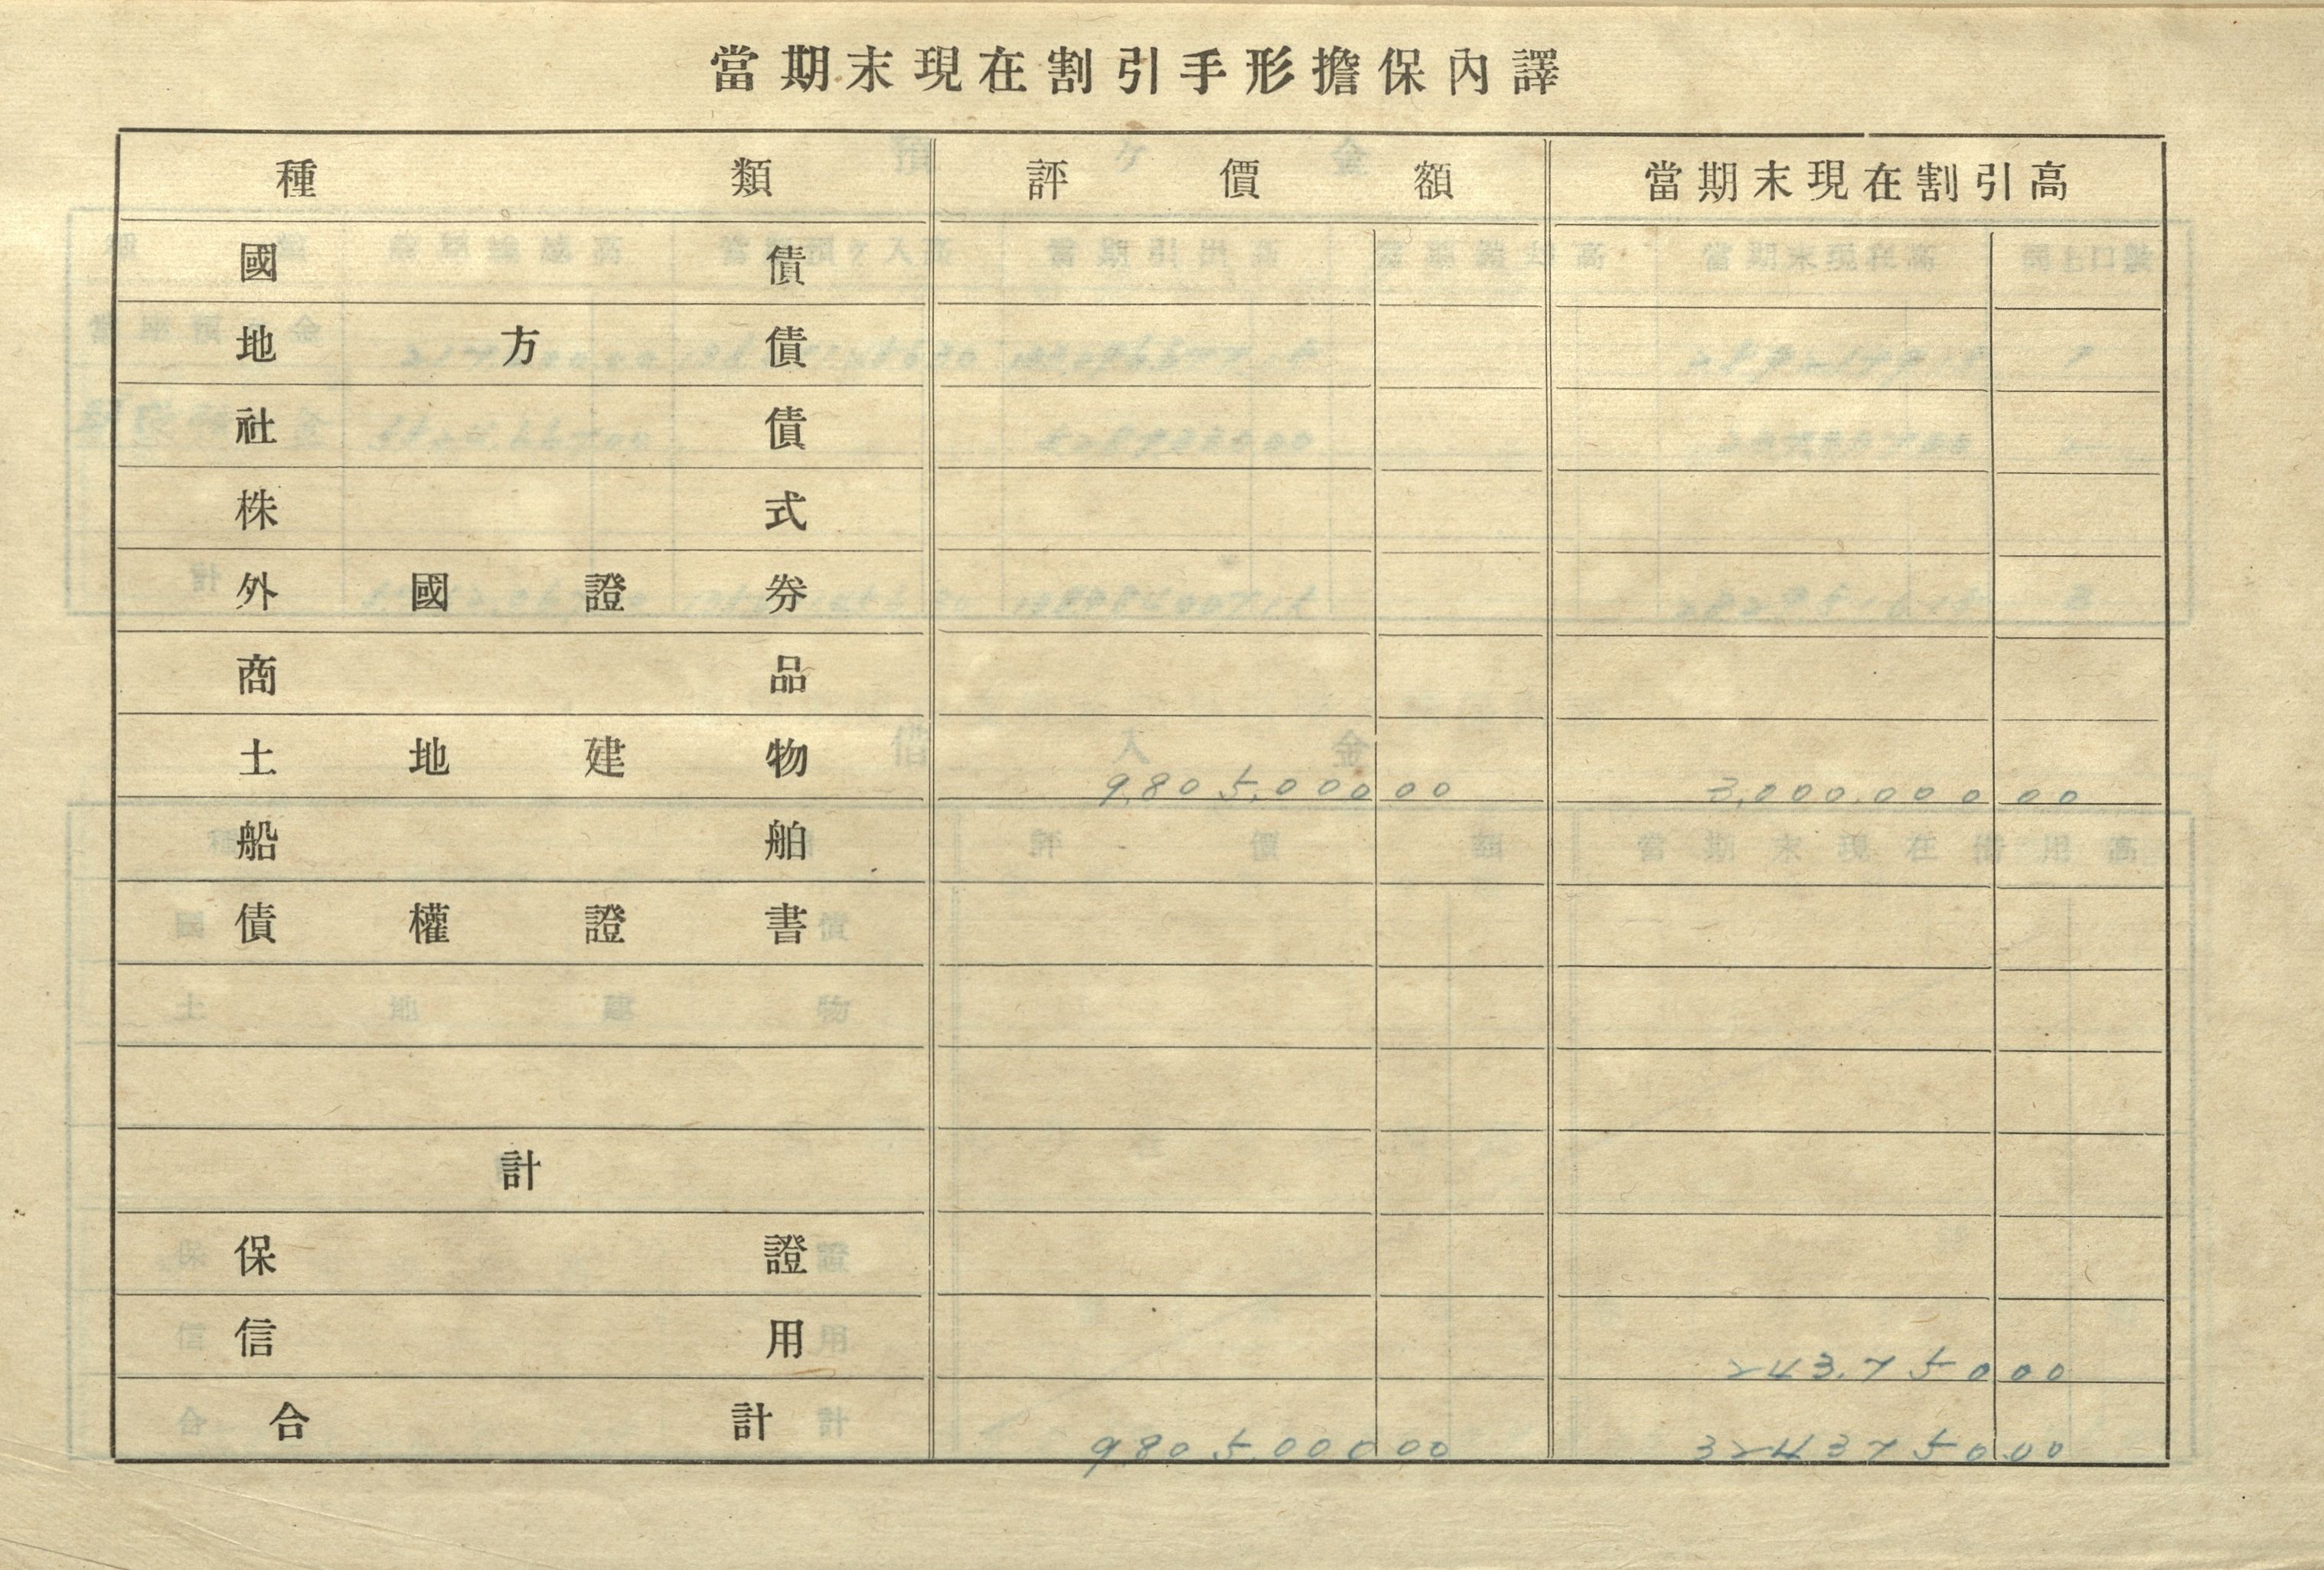 當期末現在割引手形擔保內譯
種類 評價額 當期末現在割引高
國債
地方債
社債
株式
外國證券
商品
土地建物 9,805,00000 3,000,00000
船舶
債權證書
計
保證
信用 243,75000
合計 9,805,00000 3243750.00